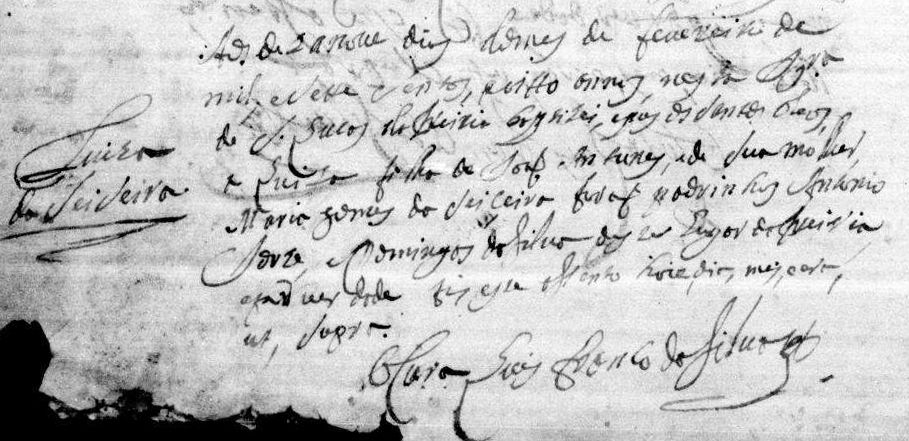 Luiza
da Seiceira
Aos dezanove dias do mes de fevereiro de
mil e sete centos, e oitto annos, nesta Igra
de S. Lucas da freiria baptizei, e pus os santos oleos,
a Luiza filha de Joseph Antunes, e de sua molher
Maria gomes da Seiceira forão padrinhos Antonio
Jorze, e Domingos da Silva deste lugar da freiria
e por verdade fiz este assento hoie, dia, mes, e era,
ut, supra.
O Cura Luis franco da Silva